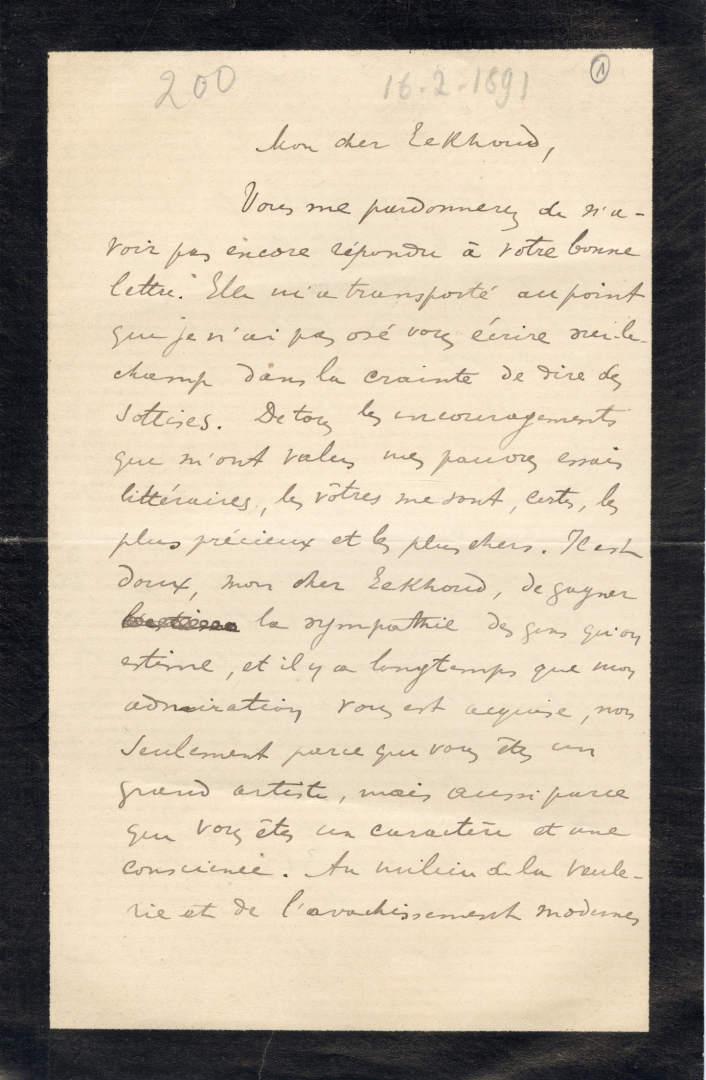 200 16-2-1891 1
Mon cher Eekhoud,
Vous me pardonnerez de n'a-
voir pas encore répondu à votre bonne
lettre. Elle m'a transporté au point
que je n'ai pas osé vous écrire sur-le-
champ dans la crainte de dire des
sottises. De tous les encouragements
que m'ont valus mes pauvres essais
littéraires, les vôtres me sont, certes, les
plus précieux et les plus chers. Il est
doux, mon cher Eekhoud, de gagner
la sympathie des gens qu'on
estime, et il y a longtemps que mon
admiration vous est acquise, non
seulement parce que vous êtes un
grand artiste, mais aussi parce
que vous êtes un caractère et une
conscience. Au milieu de la veule-
rie et de l'avachissement modernes